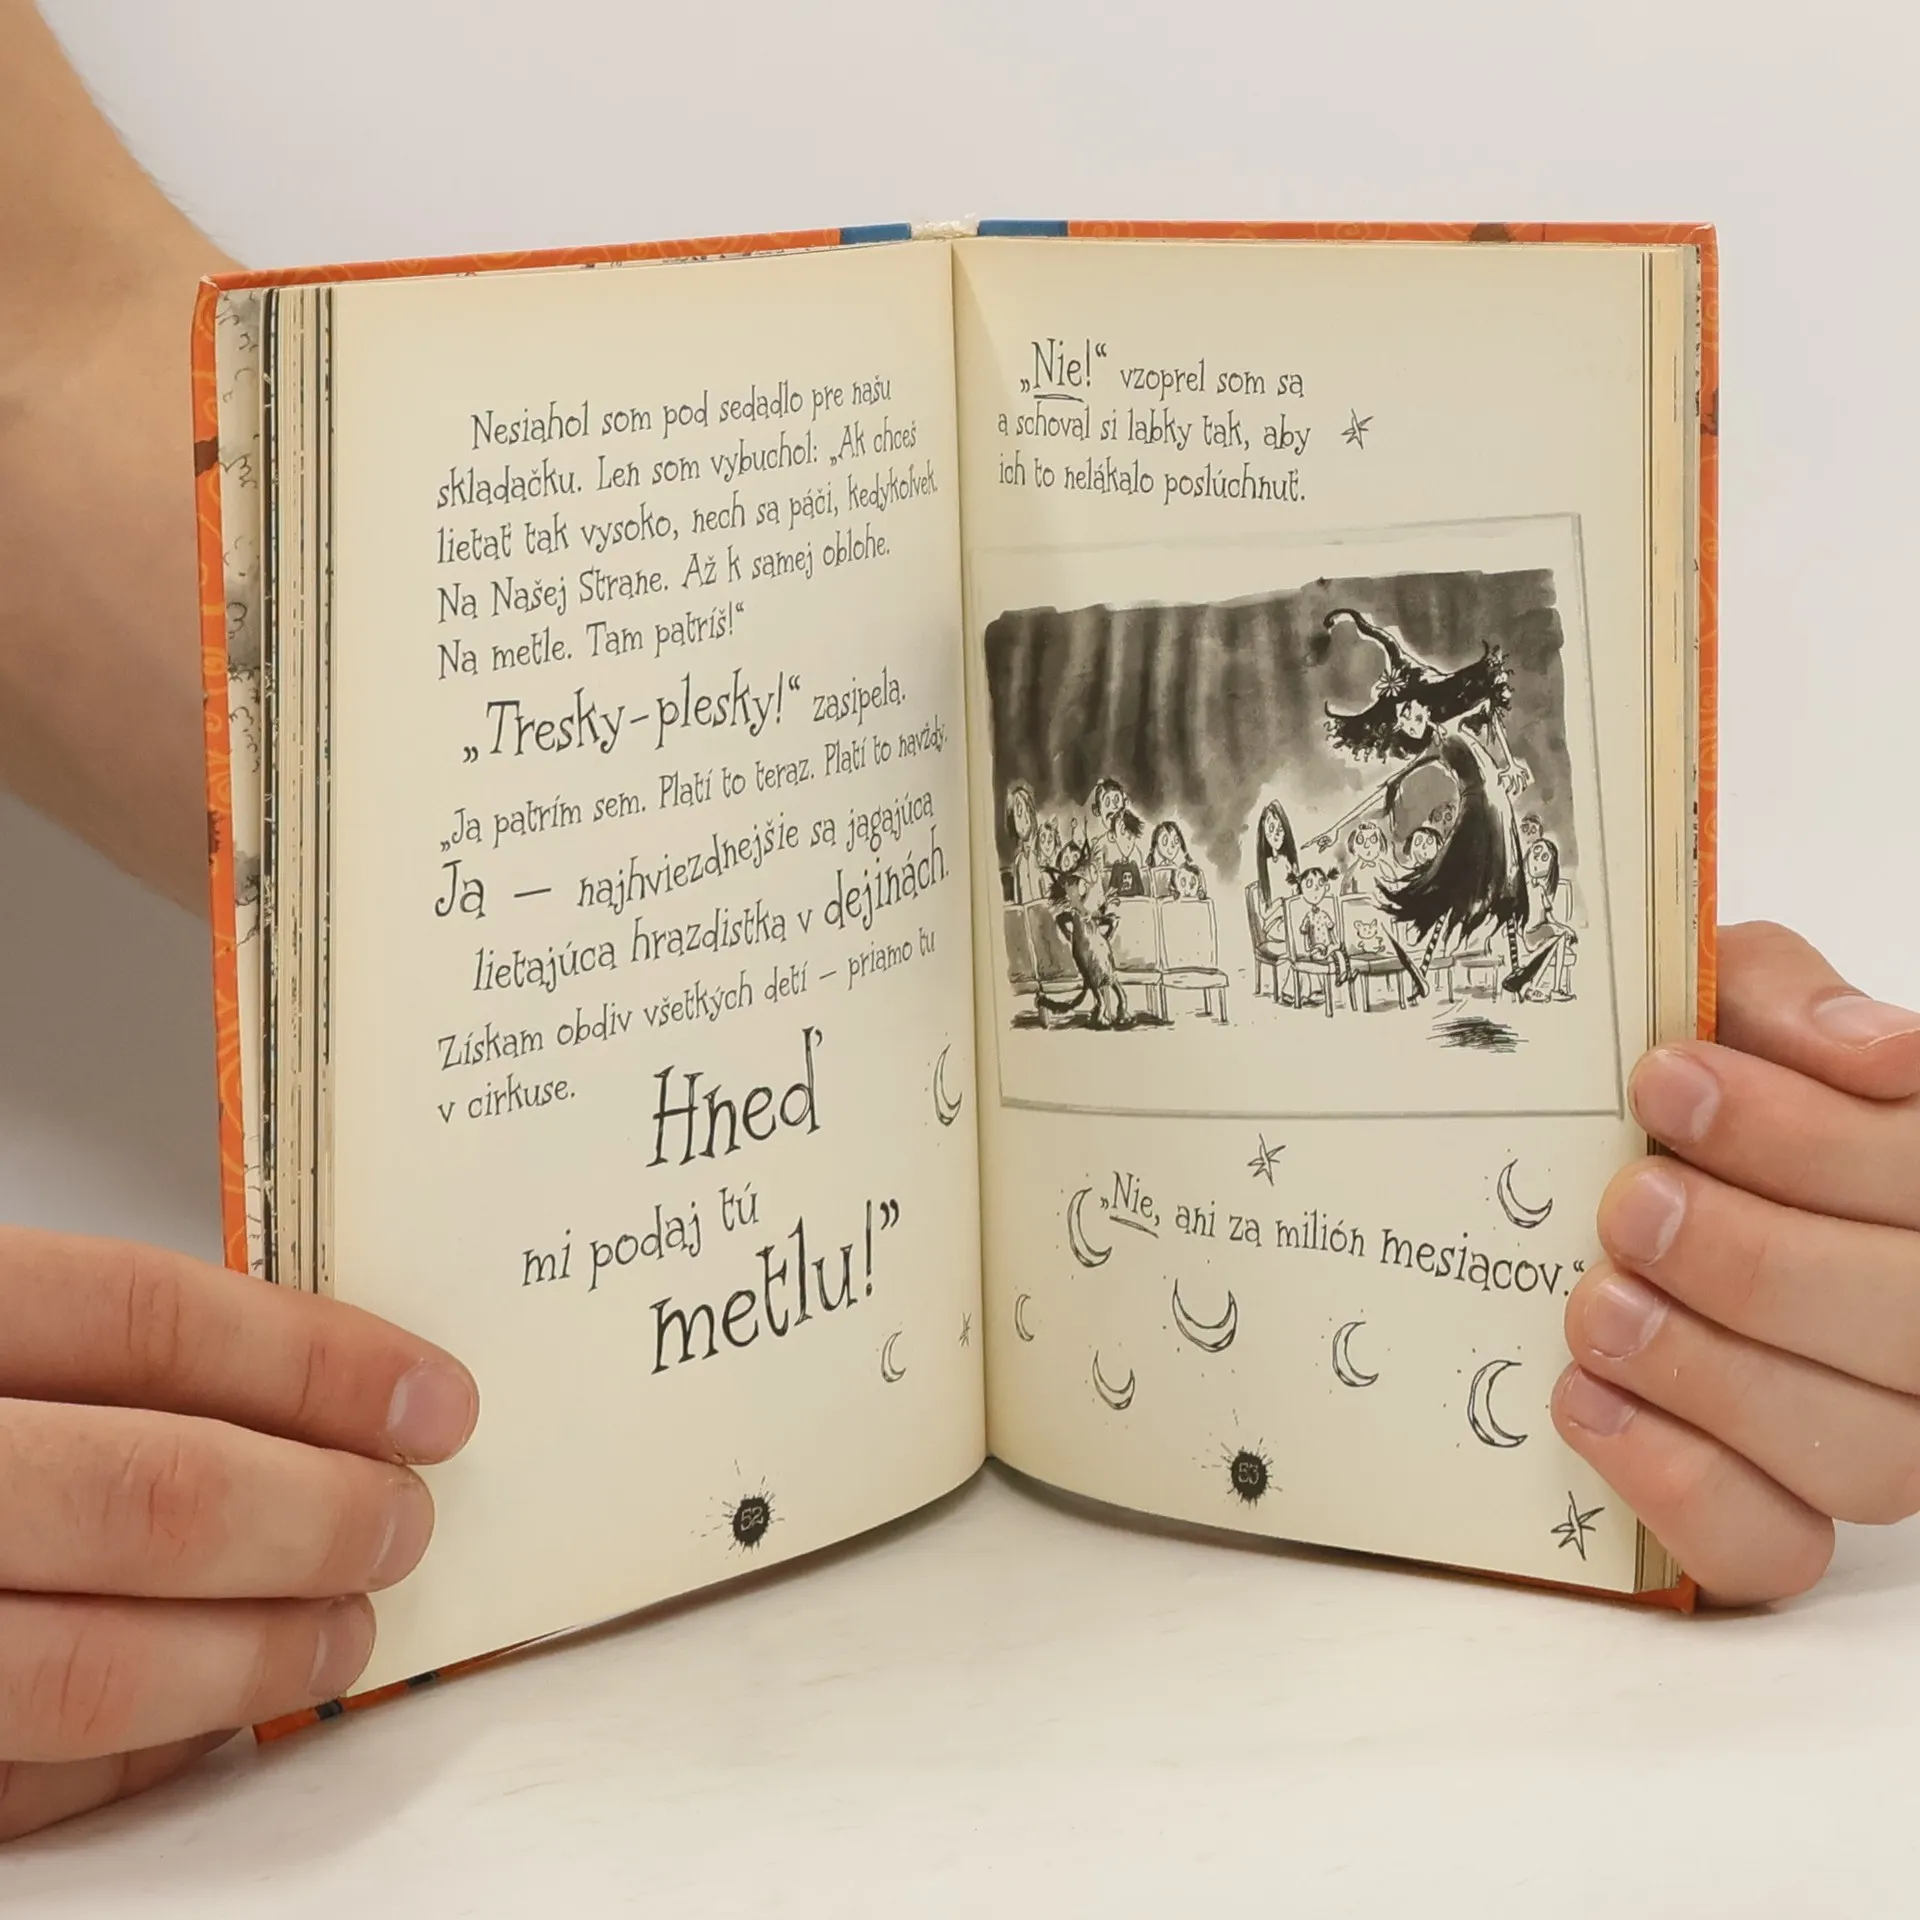 Nesiahol som pod sedadlo pre našu
skladačku. Len som vybuchol: „Ak chceš
lietať tak vysoko, nech sa páči, kedykoľvek.
Na Našej Strane. Až k samej oblohe.
Na metle. Tam patríš!“
„Tresky-plesky!“ zasipela.
„Ja patrím sem. Platí to teraz. Platí to navždy.
Ja — najhviezdnejšie sa jagajúca
lietajúca hrazdistka v dejinách.
Získam obdiv všetkých detí – priamo tu
v cirkuse.
Hneď
mi podaj tú
metlu!”
52
„Nie!“ vzoprel som sa
a schoval si labky tak, aby
ich to nelákalo poslúchnuť.
„Nie, ani za milión mesiacov.“
53